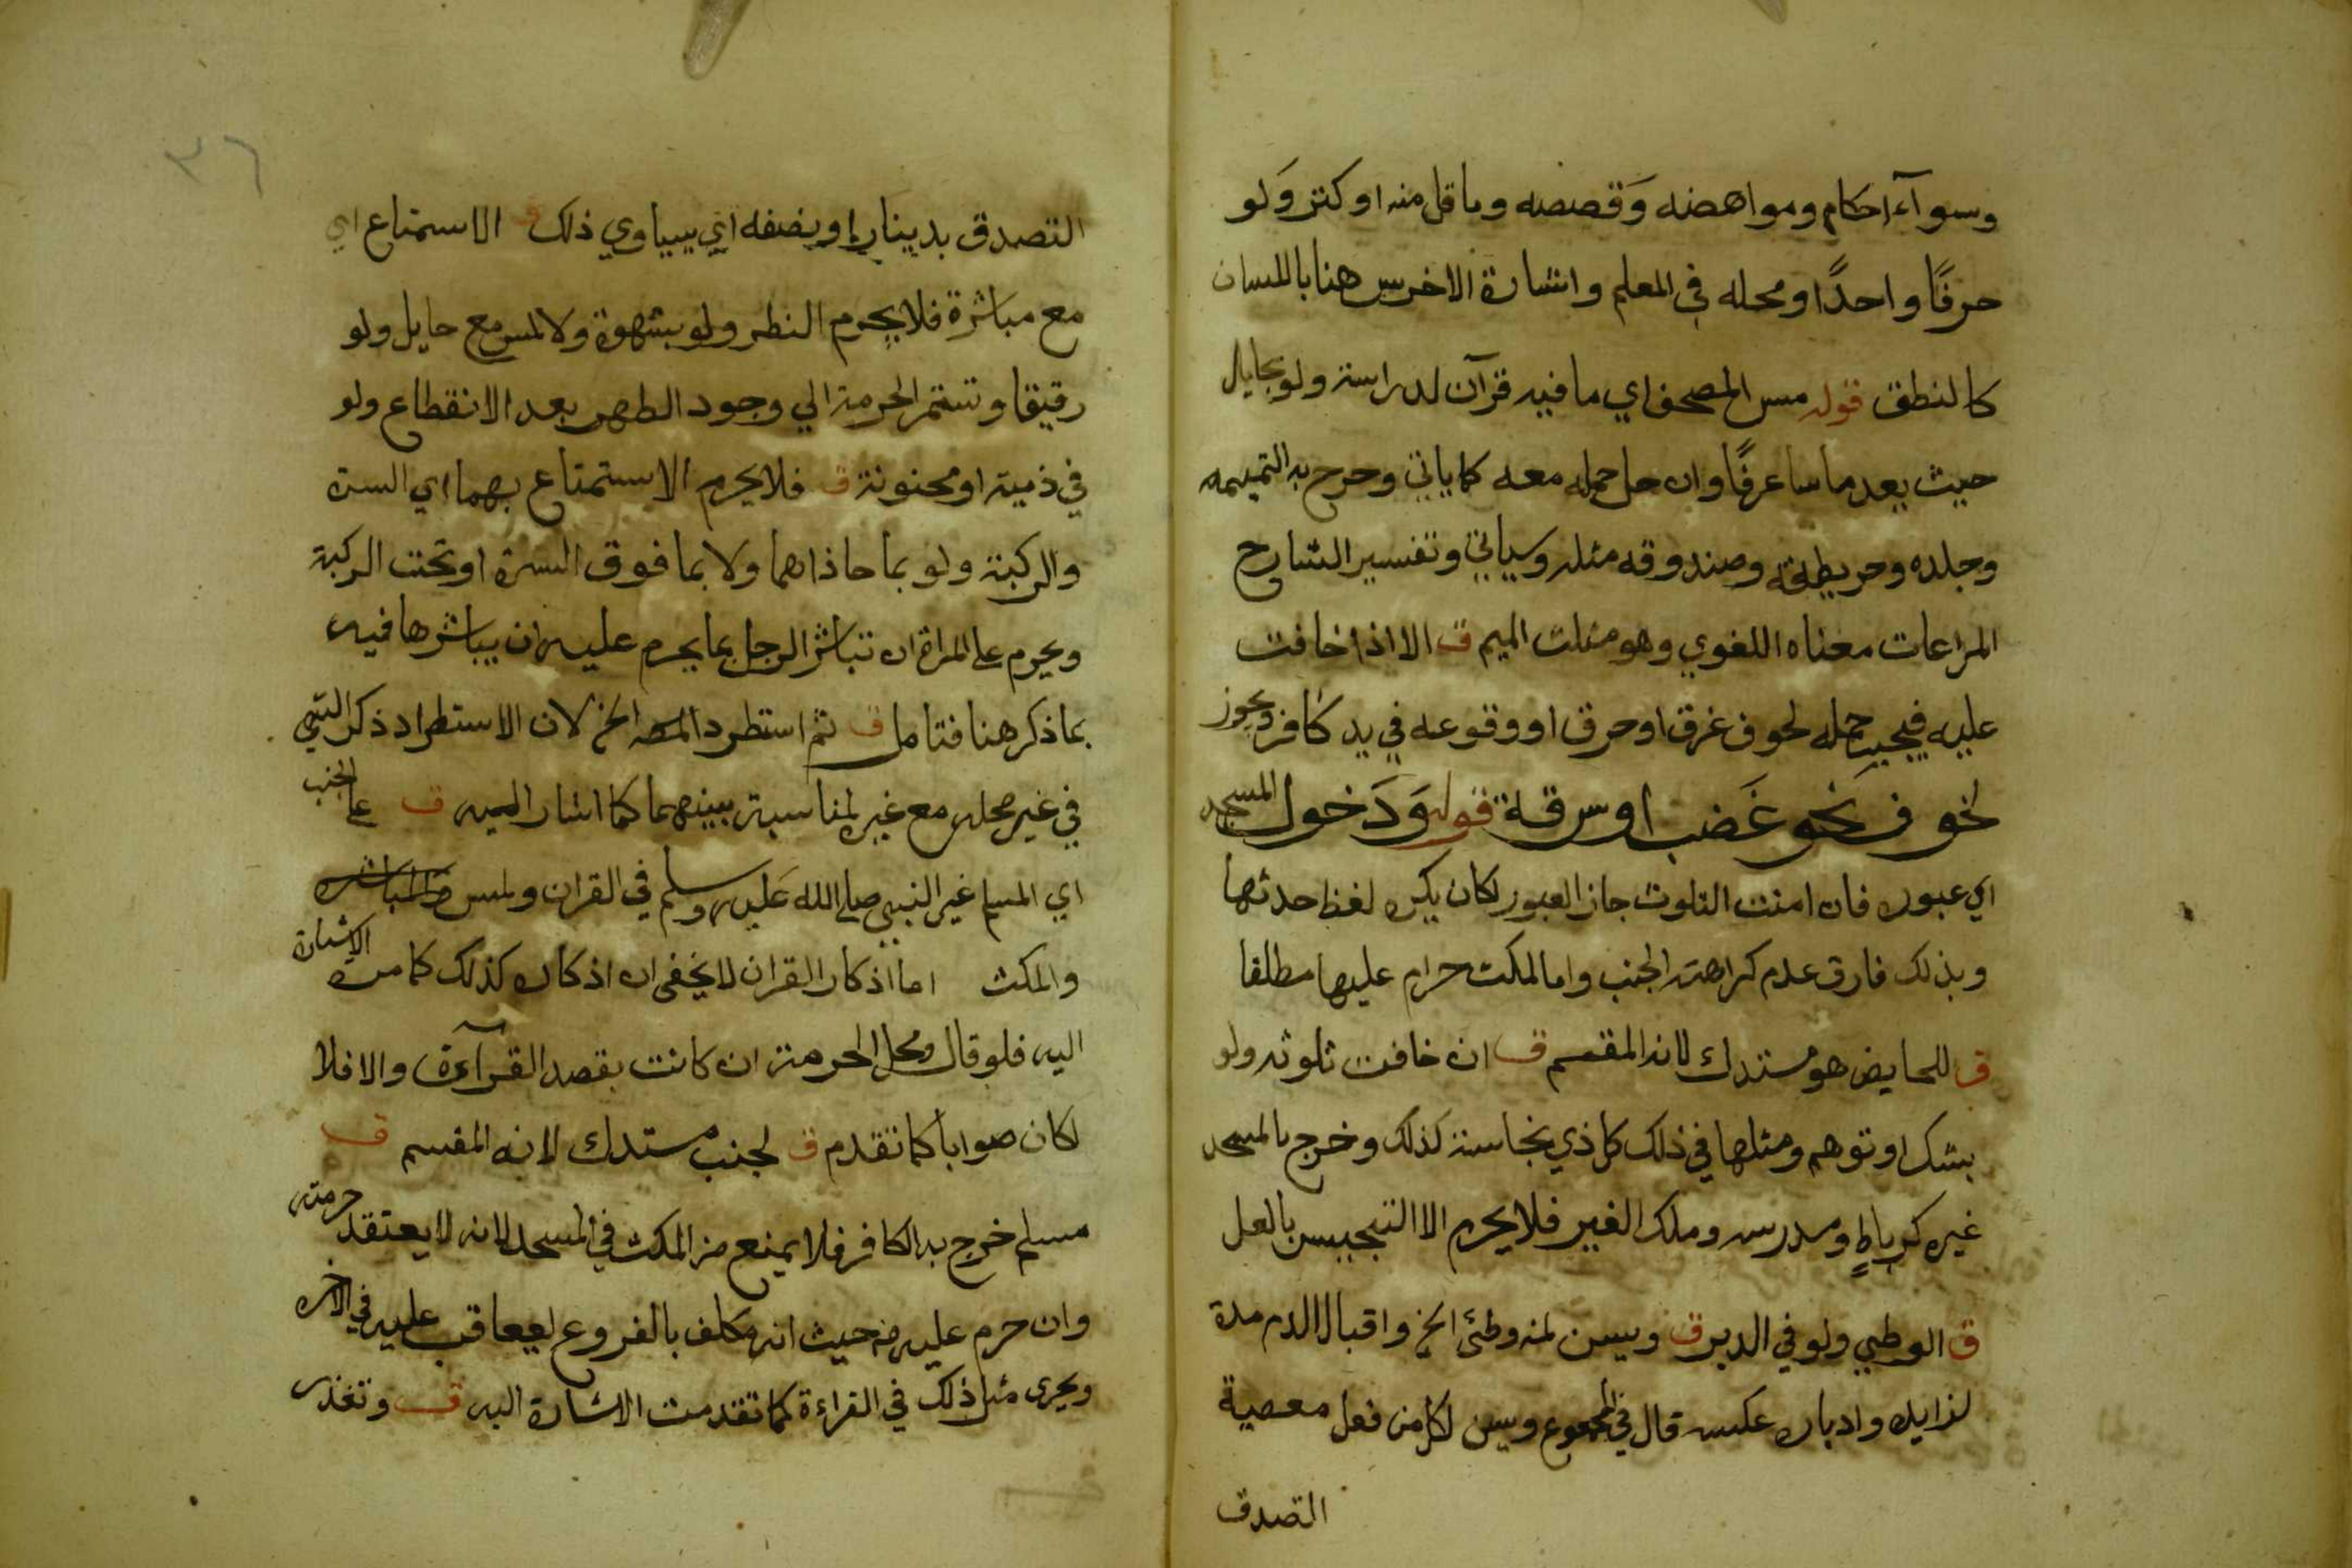 وسوآء احكام ومواهضه وقصصه وما قل منه او كثر ولو
حرفًا واحدًا ومحله في المعلم واشارة الاخرس هنا باللسان
كالنطق قوله مس المصحف اي ما فيه قرآن لدراسة ولو بحايل
حيث يعد ماسا عرفًا وان حل حمله معه كما ياتي وخرج به التميمه
وجلده وخريطته وصندوقه مثله وسياتي وتفسير الشارح
المراعات معناه اللغوي وهو مثلث الميم ق الا اذا خافت
عليه فيجب حمله لخوف غرق او حرق او وقوعه في يد كافر ويجوز
لخوف نحو غَضب او سرقة قوله وَدَخول المسجد
اي عبوره فان امنت التلوث جاز العبور لكان يكره لغظ حدثها
وبذلك فارق عدم كراهته الجنب واما المكث حرام عليها مطلقا
ق للحايض هو مستدك لانه المقسم ق ان خافت تلوثه ولو
بشك او توهم ومثلها في ذلك كل ذي نجاسة كذلك وخرج بالمسجد
غيره كرباطٍ ومدرسه وملك الغير فلا يحرم الا التنجيس بالفعل
ق الوطيي ولو في الدبر ق ويسن لمن وطئ الخ واقبال الدم مدة
لزايده وادباره عكسه قال في المجموع ويسن لكل من فعل معصية
التصدق
٣٦
التصدق بدينار او نصفه اي يساوي ذلك ق الاستمتاع اي
مع مباشرة فلا يحرم النظر ولو بشهوة ولا لمس مع حايل ولو
رقيقا وتستمر الحرمة الي وجود الطهر بعد الانقطاع ولو
في ذمية او مجنونة ق فلا يحرم الاستمتاع بهما اي السرة
والركبة ولو بما حاذاهما ولا بما فوق السرة او تحت الركبة
ويحرم على المراة ان تباشر الرجل بما يحرم عليه ان يباشرها فيه
بما ذكر هنا فتامل ق ثم استطرد المصه الخ لان الاستطراد ذكر الشي
في غير محله مع غيره لمناسبة بينهما كما اشار اليه ق على الجنب
اي المسلم غير النبي صلى الله عليه وسلم في القران ولمس
والمكث اما اذكار القران لا يخفى ان اذكاره كذلك كما مرت الاشارة
اليه فلو قال ومحل الحرمة ان كانت بقصد القرآءة والا فلا
لكان صوابا كما تقدم ق لجنب مستدك لانه المقسم ق
مسلم خرج به الكافر فلا يمنع من المكث في المسجد لانه لا يعتقد حرمته
وان حرم عليه من حيث انه مكلف بالفروع ليعاقب عليه في الاخره
ويجرى مثل ذلك في القراءة كما تقدمت الاشارة اليه ق وتغذر